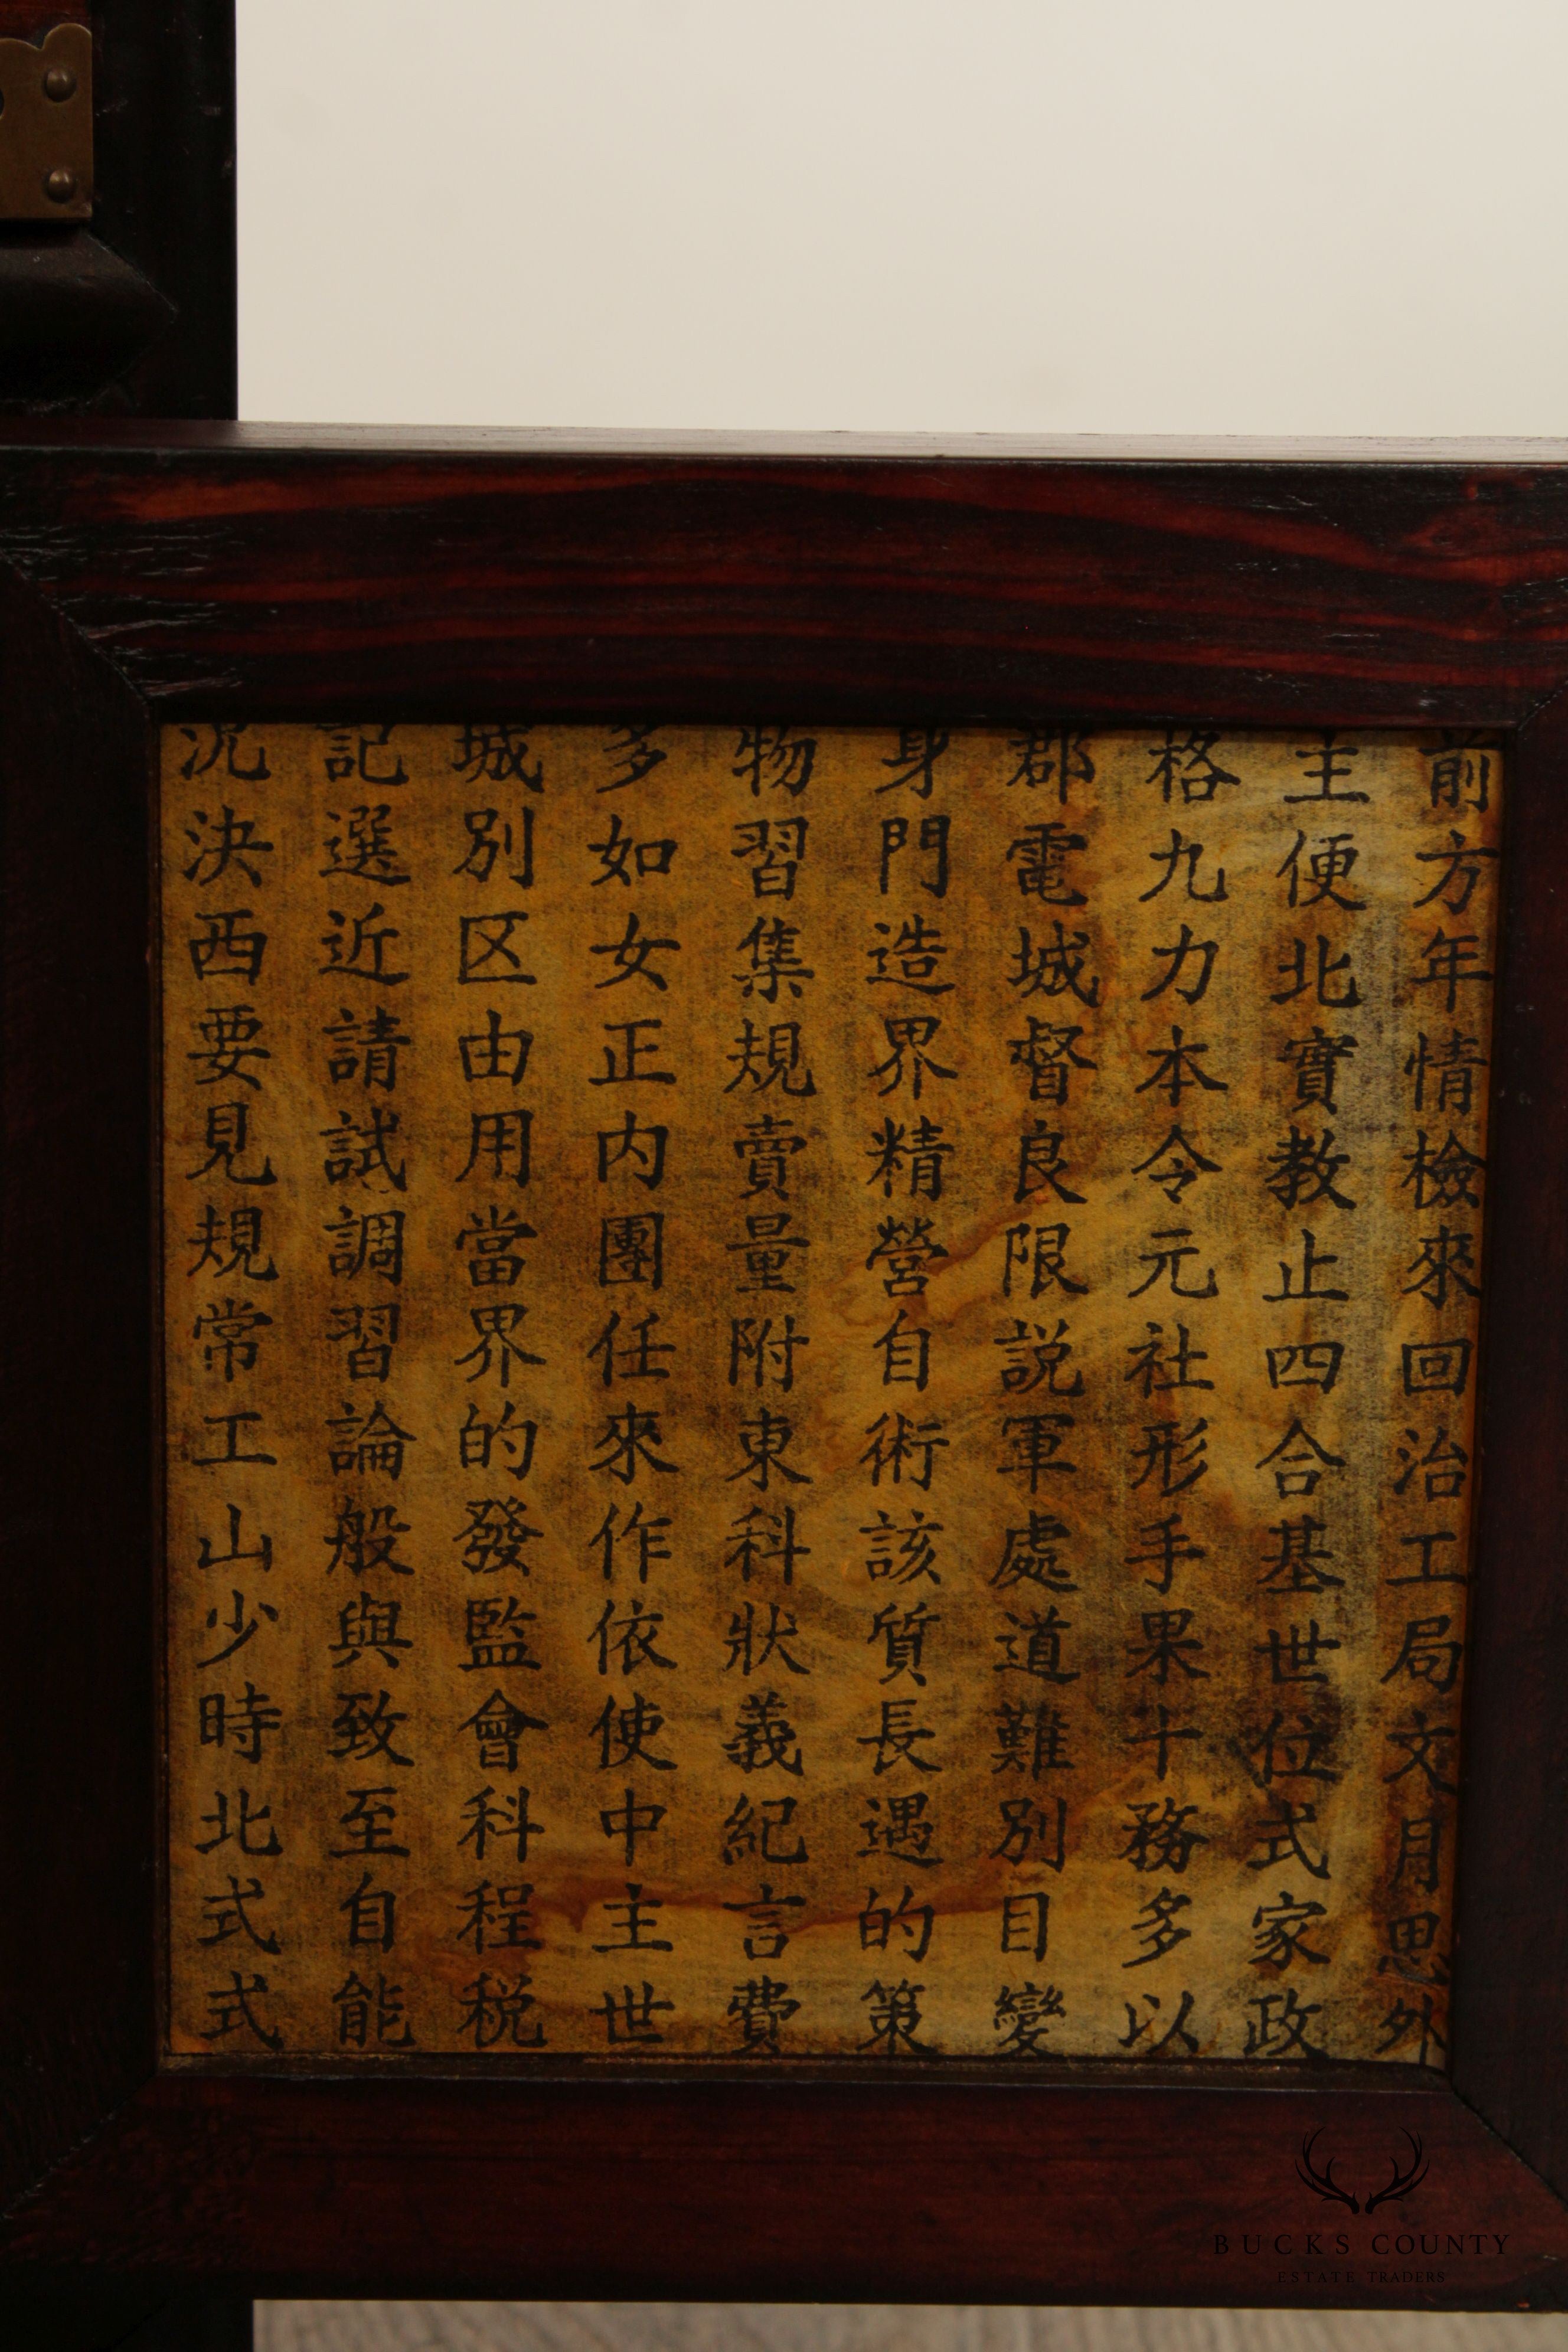 前方年情檢來回治工局文月思外
主便北實教止四合基世位式家政
格九力本令元社形手果十務多以
郡電城督良限説軍處道難別目變
身門造界精營自術該質長遇的策
物習集規賣量附東科狀義紀言費
多如女正内團任來作依使中主世
城別区由用當界的發監會科程税
記選近請試調習論般與致至自能
況決西要見規常工山少時北式式
BUCKS COUNTY
ESTATE TRADERS